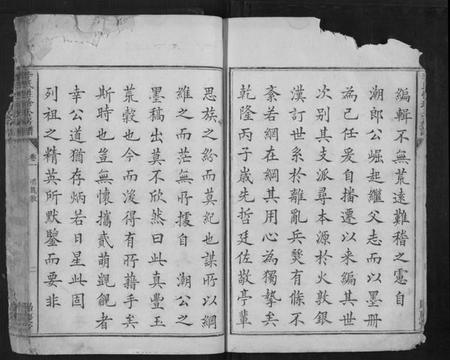 編輯不無荒遠難稽之憲自
潮郎公崛起繼父志而以墨冊
為己任爰自播遷以来編其世
次別其支派尋本源於火敦銀
漢訂世系於離亂兵燹有條不
紊若網在綱其用心為獨摯矣
乾隆丙子歲先哲廷佐敬亭輩
思族之紛而莫紀也謀所以綱
維之而茫無所據自 潮公之
墨稿出莫不欣然曰此真豐玉
荒穀也今而後得有所藉手矣
斯時也豈無懷攜貳萌覬覦者
幸公道猶存炳若日星此固
列祖之精英所默鑒而要非
卷一
二